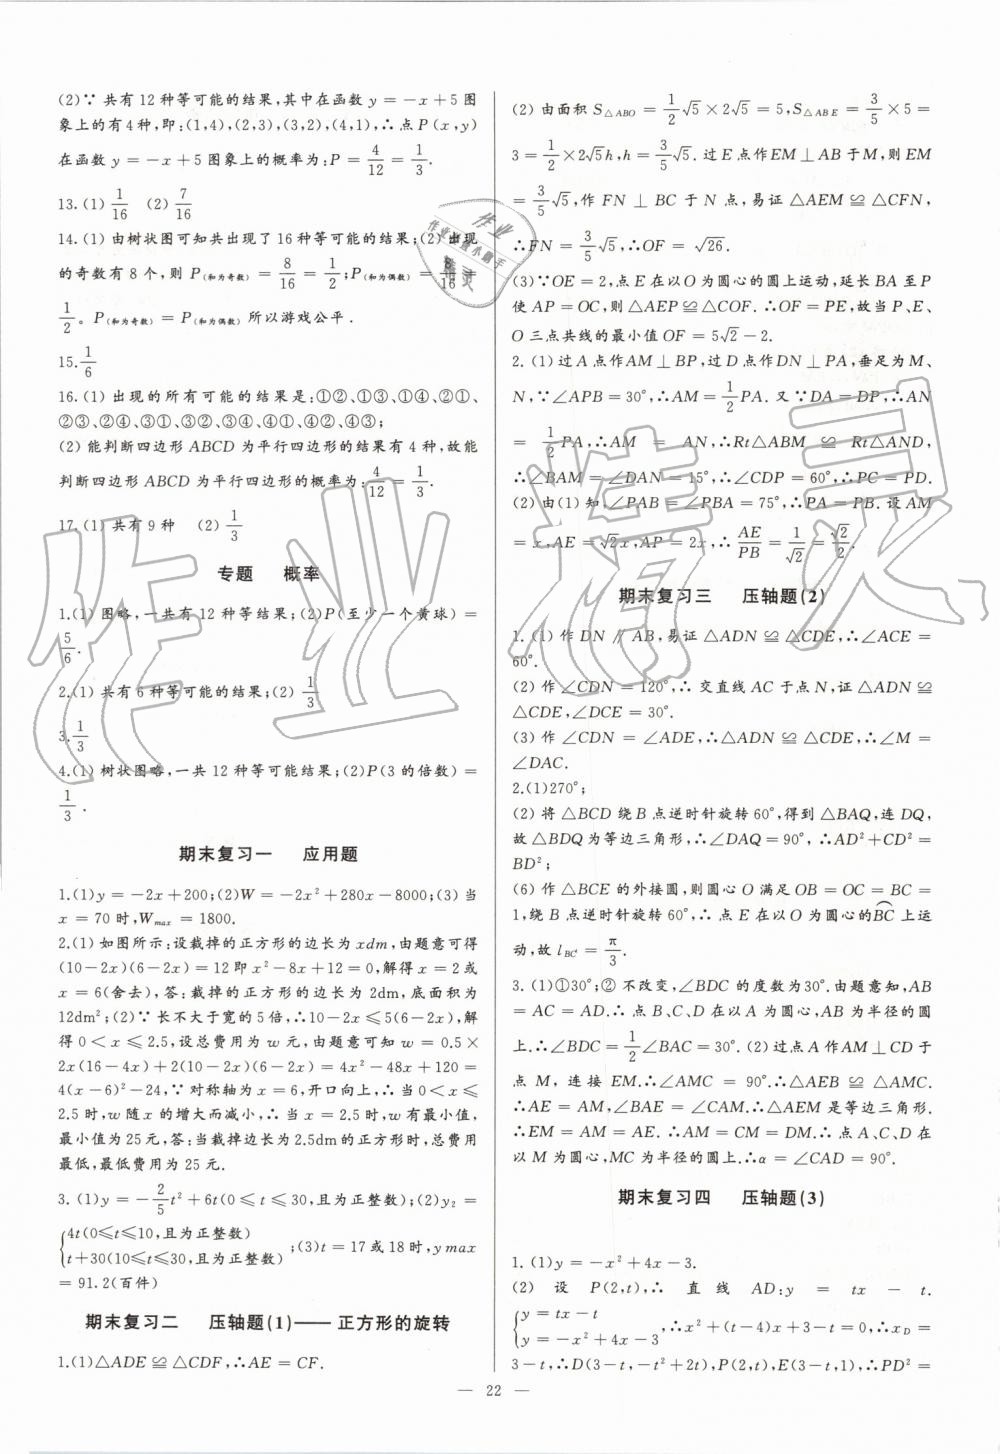 (2)∵ 共有 12 种等可能的结果,其中在函数 y=-x+5 图
象上的有4种,即:(1,4),(2,3),(3,2),(4,1),∴点P(x,y)
在函数 y=-x+5 图象上的概率为:P=4/12=1/3.
13.(1) 1/16 (2) 7/16
14.(1) 由树状图可知共出现了 16 种等可能的结果;(2)出现
的奇数有 8 个,则 P(和为奇数)=8/16=1/2;P(和为偶数)=8/16=
1/2。P(和为奇数)=P(和为偶数) 所以游戏公平.
15. 1/6
16.(1) 出现的所有可能的结果是:①②、①③、①④、②①、
②③、②④、③①、③②、③④、④①、④②、④③;
(2) 能判断四边形 ABCD 为平行四边形的结果有 4 种,故能
判断四边形 ABCD 为平行四边形的概率为:4/12=1/3.
17.(1) 共有 9 种 (2) 1/3
专题 概率
1.(1) 图略,一共有 12 种等结果;(2)P(至少一个黄球)=
5/6.
2.(1) 共有 6 种等可能的结果;(2) 1/3
3. 1/3
4.(1) 树状图略,一共 12 种等可能结果;(2)P(3 的倍数)=
1/3.
期末复习一 应用题
1.(1)y=-2x+200;(2)W=-2x²+280x-8000;(3) 当
x=70 时,Wmax=1800.
2.(1) 如图所示:设裁掉的正方形的边长为 xdm,由题意可得
(10-2x)(6-2x)=12 即 x²-8x+12=0,解得 x=2或
x=6(舍去),答:裁掉的正方形的边长为 2dm,底面积为
12dm²;(2)∵ 长不大于宽的 5 倍,∴10-2x≤5(6-2x),
解得 0<x≤2.5,设总费用为 w 元,由题意可知 w=0.5×
2x(16-4x)+2(10-2x)(6-2x)=4x²-48x+120=
4(x-6)²-24,∵ 对称轴为 x=6,开口向上,∴ 当 0<x≤
2.5 时,w 随 x 的增大而减小,∴ 当 x=2.5 时,w 有最小值,
最小值为 25 元,答:当裁掉边长为 2.5dm 的正方形时,总费用
最低,最低费用为 25 元.
3.(1)y=-2/5t²+6t(0≤t≤30,且为正整数);(2)y₂=
{4t(0≤t≤10,且为正整数)
t+30(10≤t≤30,且为正整数) ;(3)t=17 或 18 时,ymax
=91.2(百件)
期末复习二 压轴题(1)——正方形的旋转
1.(1)△ADE≌△CDF,∴AE=CF.
(2) 由面积 S△ABO=1/2√5×2√5=5,S△ABE=3/5×5=
3=1/2×2√5h,h=3/5√5. 过 E 点作EM⊥AB 于M,则 EM
=3/5√5,作 FN⊥BC 于 N 点,易证 △AEM≌△CFN,
∴FN=3/5√5,∴OF=√26.
(3)∵OE=2,点 E 在以 O 为圆心的圆上运动,延长 BA 至 P
使 AP=OC,则 △AEP≌△COF. ∴OF=PE,故当 P、E、
O 三点共线的最小值 OF=5√2-2.
2.(1) 过 A 点作AM⊥BP,过 D 点作DN⊥PA,垂足为 M、
N,∵∠APB=30°,∴AM=1/2PA. 又∵DA=DP,∴AN
=1/2PA,∴AM=AN,∴Rt△ABM≌Rt△AND,
∴∠BAM=∠DAN=15°,∴∠CDP=60°,∴PC=PD.
(2) 由(1) 知,∠PAB=∠PBA=75°,∴PA=PB. 设 AM
=x,AE=√2x,AP=2x,∴AE/PB=1/√2=√2/2.
期末复习三 压轴题(2)
1.(1) 作 DN∥AB,易证 △ADN≌△CDE,∴∠ACE=
60°.
(2) 作 ∠CDN=120°,∴ 交直线 AC 于点 N,证 △ADN≌
△CDE,∠DCE=30°.
(3) 作 ∠CDN=∠ADE,∴△ADN≌△CDE,∴∠M=
∠DAC.
2.(1)270°;
(2) 将 △BCD 绕 B 点逆时针旋转 60°,得到 △BAQ,连 DQ,
故 △BDQ 为等边三角形,∴∠DAQ=90°,∴AD²+CD²=
BD²;
(6) 作 △BCE 的外接圆,则圆心 O 满足 OB=OC=BC=
1,绕 B 点逆时针旋转 60°,∴ 点 E 在以 O 为圆心的⌒BC 上运
动,故 lBC=π/3.
3.(1)①30°;② 不改变,∠BDC 的度数为30°.由题意知,AB
=AC=AD.∴ 点 B、C、D 在以 A 为圆心,AB 为半径的圆
上.∴∠BDC=1/2∠BAC=30°.(2) 过点 A 作AM⊥CD 于
点 M,连接 EM.∴∠AMC=90°.∴△AEB≌△AMC.
∴AE=AM,∠BAE=∠CAM.∴△AEM 是等边三角形.
∴EM=AM=AE.∴AM=CM=DM.∴ 点 A、C、D 在
以 M 为圆心,MC 为半径的圆上.∴α=∠CAD=90°.
期末复习四 压轴题(3)
1.(1)y=-x²+4x-3.
(2) 设 P(2,t),∴ 直线 AD:y=tx-t.
{y=tx-t
y=-x²+4x-3 ,∴x²+(t-4)x+3-t=0,∴xD=
3-t,∴D(3-t,-t²+2t),P(2,t),E(3-t,1),∴PD²=
— 22 —
作业
作业检查小助手
精灵
作业精灵